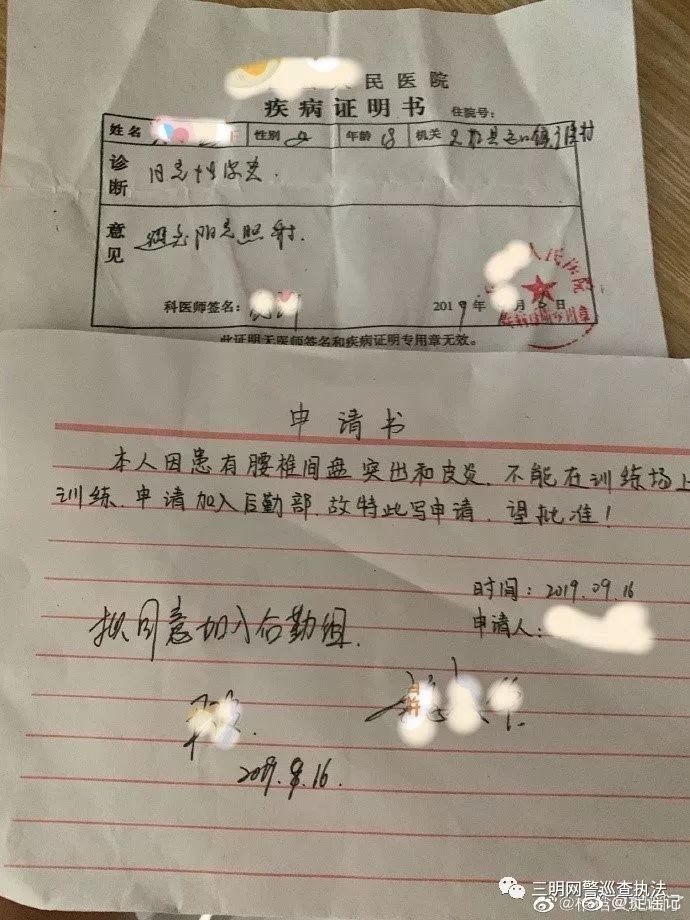 人民医院
疾病证明书 住院号:
姓名 性别 女 年龄 18 机关
诊断 日光性皮炎.
意见 避免阳光照射.
人民医院
科医师签名: 2019年 月 日
此证明无医师签名和疾病证明专用章无效。
申请书
本人因患有腰椎间盘突出和皮炎,不能在训练场上
训练,申请加入后勤部,故特此写申请,望批准!
时间:2019.09.16
申请人:
拟同意加入后勤组.
2019.9.16.
三明网警巡查执法
捉谣记